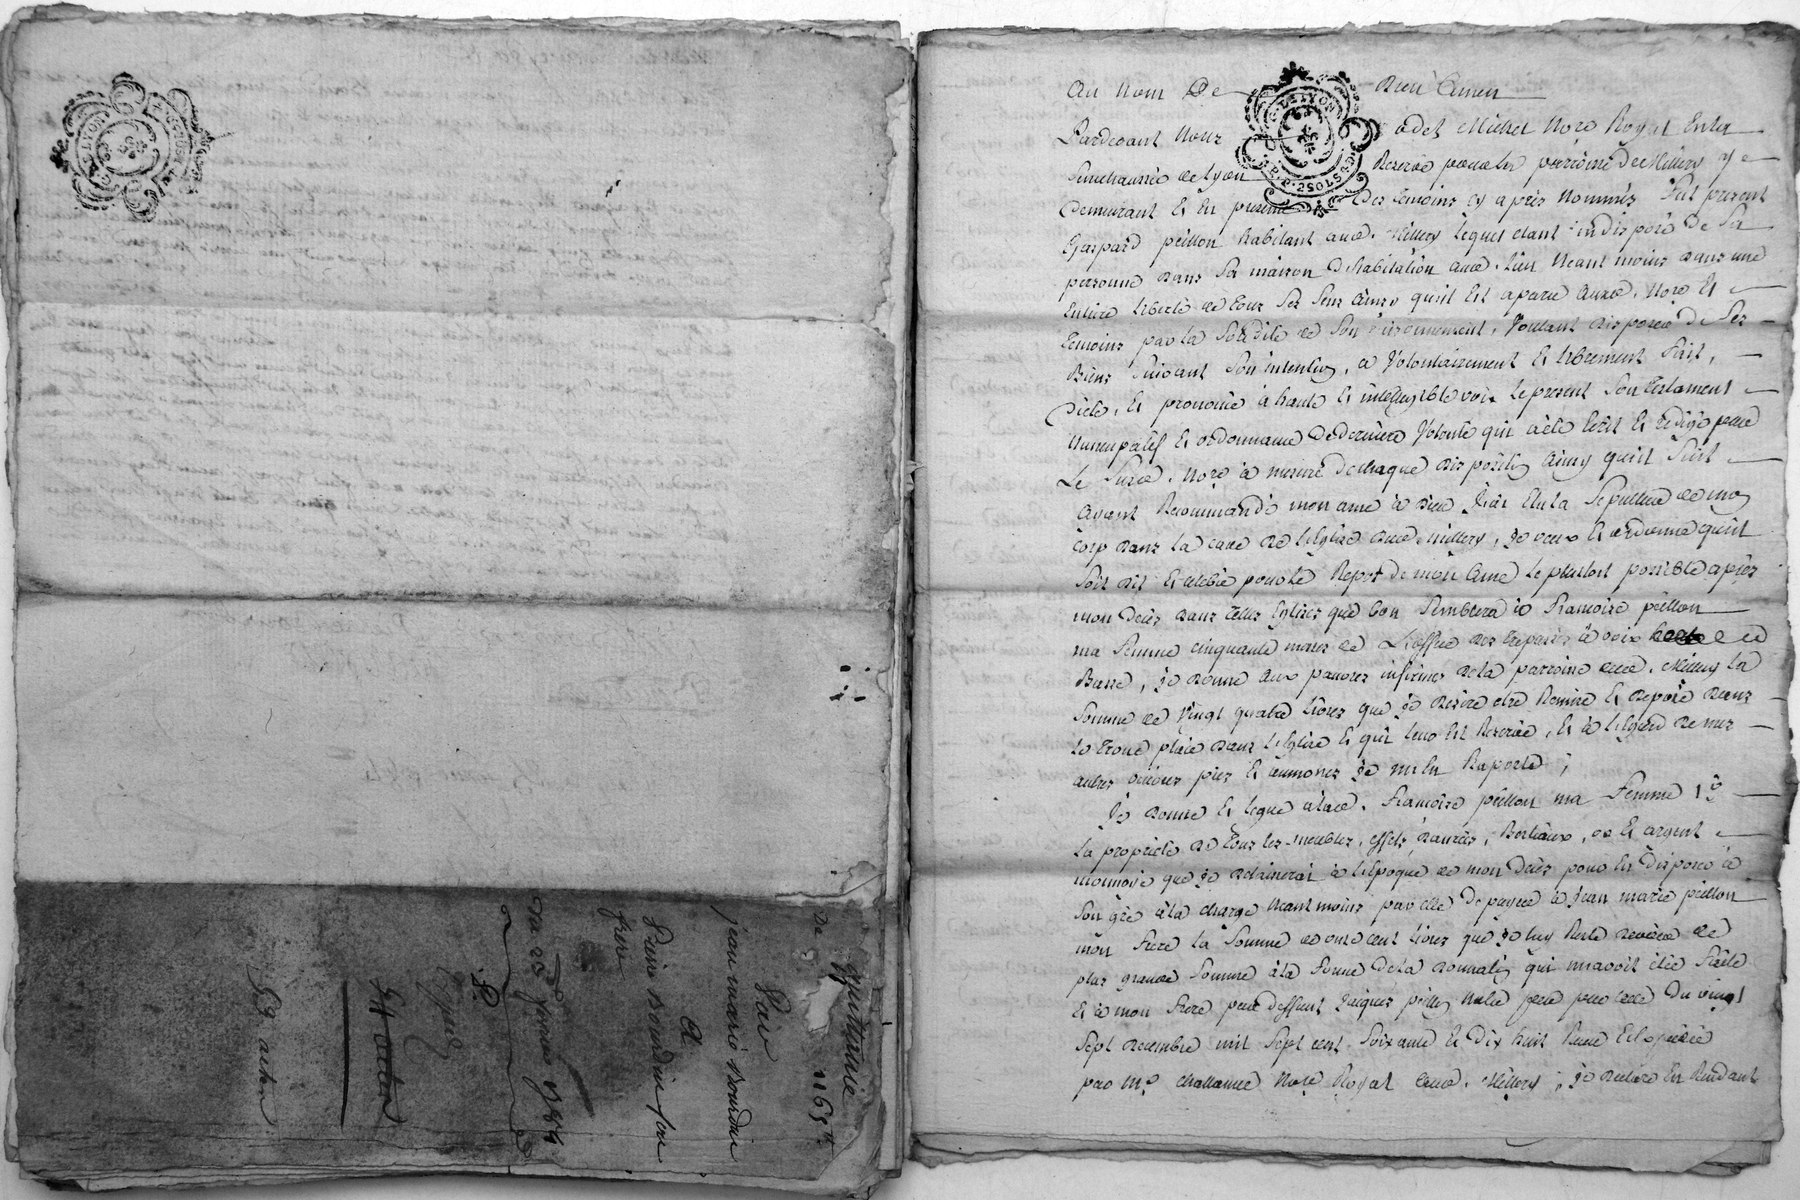 G. DE LYON
2 SOLS
quittance 1165 tt
De
jean marie bourdin
A
Pierre bourdin son
frere
Du 23 janvier 1784
Expéd
54 actes
53 actes
Au Nom De Dieu Amen
Pardevant Nous Odet Michel Nore Royal En la
Senechaussée de Lyon Reservé pour la parroisse de Millery y
Demeurant Et En presence Des temoins cy après Nommés Fut present
Gaspard peillon habitant aud. Millery lequel etant indisposé De Sa
personne Dans Sa maison D'habitation aud. lieu Neant moins Dans une
Entiere liberté de tous Ses Sens Ainsy qu'il Est aparu Auxd. Nore Et
temoins par la Solidité de Son raisonnement, Voulant Disposer De Ses
Biens Suivant Son intention, a Volontairement Et librement Fait,
Dicté, Et prononcé à haute Et intelligible voix le present Son testament
Nuncupatif Et ordonnance De derniere Volonté qui a été Ecrit Et redigé par
Le Susd. Nore à mesure De chaque Disposition Ainsy qu'il Suit
Ayant Recommandé mon ame à Dieu J'ai Elu la Sepulture de mon
corp Dans la cave De l'Eglise dud. Millery, je veux Et ordonne qu'il
Soit Dit Et celebré pour le Repos De mon Ame le plustot possible après
mon Deces Dans telles Eglises que bon Semblera à Francoise peillon
ma Femme cinquante messes de L'office des trepassés à voix
Basse, je Donne aux pauvres infirmes De la parroisse dud. Millery la
Somme de Vingt quatre livres que je Desire etre Remise Et Deposé Dans
le tronc placé Dans l'Eglise Et qui leur Est Reservé, Et à l'Egard De mes
autres œuvres pies Et aumones je m'en Raporte ;
Je Donne Et legue à lad. Francoise peillon ma Femme 1°
la proprieté De tous les meubles, effets, Danrées, Bestiaux, or Et argent
monnoyé que je Delaisserai à l'Epoque de mon Deces pour En Disposer à
Son gré à la charge Neant moins par elle De payer à Jean marie peillon
mon Frere la Somme de onze cent livres que je luy Reste Devoir De
plus grande Somme à la Forme De la Donnation qui m'avoit étée Faite
Et à mon Frere par deffunt Jacques peillon Notre pere par acte Du vingt
Sept Decembre mil Sept cent Soixante Et Dix huit Recu Et Expedié
par Me Nore Royal Aud. Millery ; je Declare En Rendant